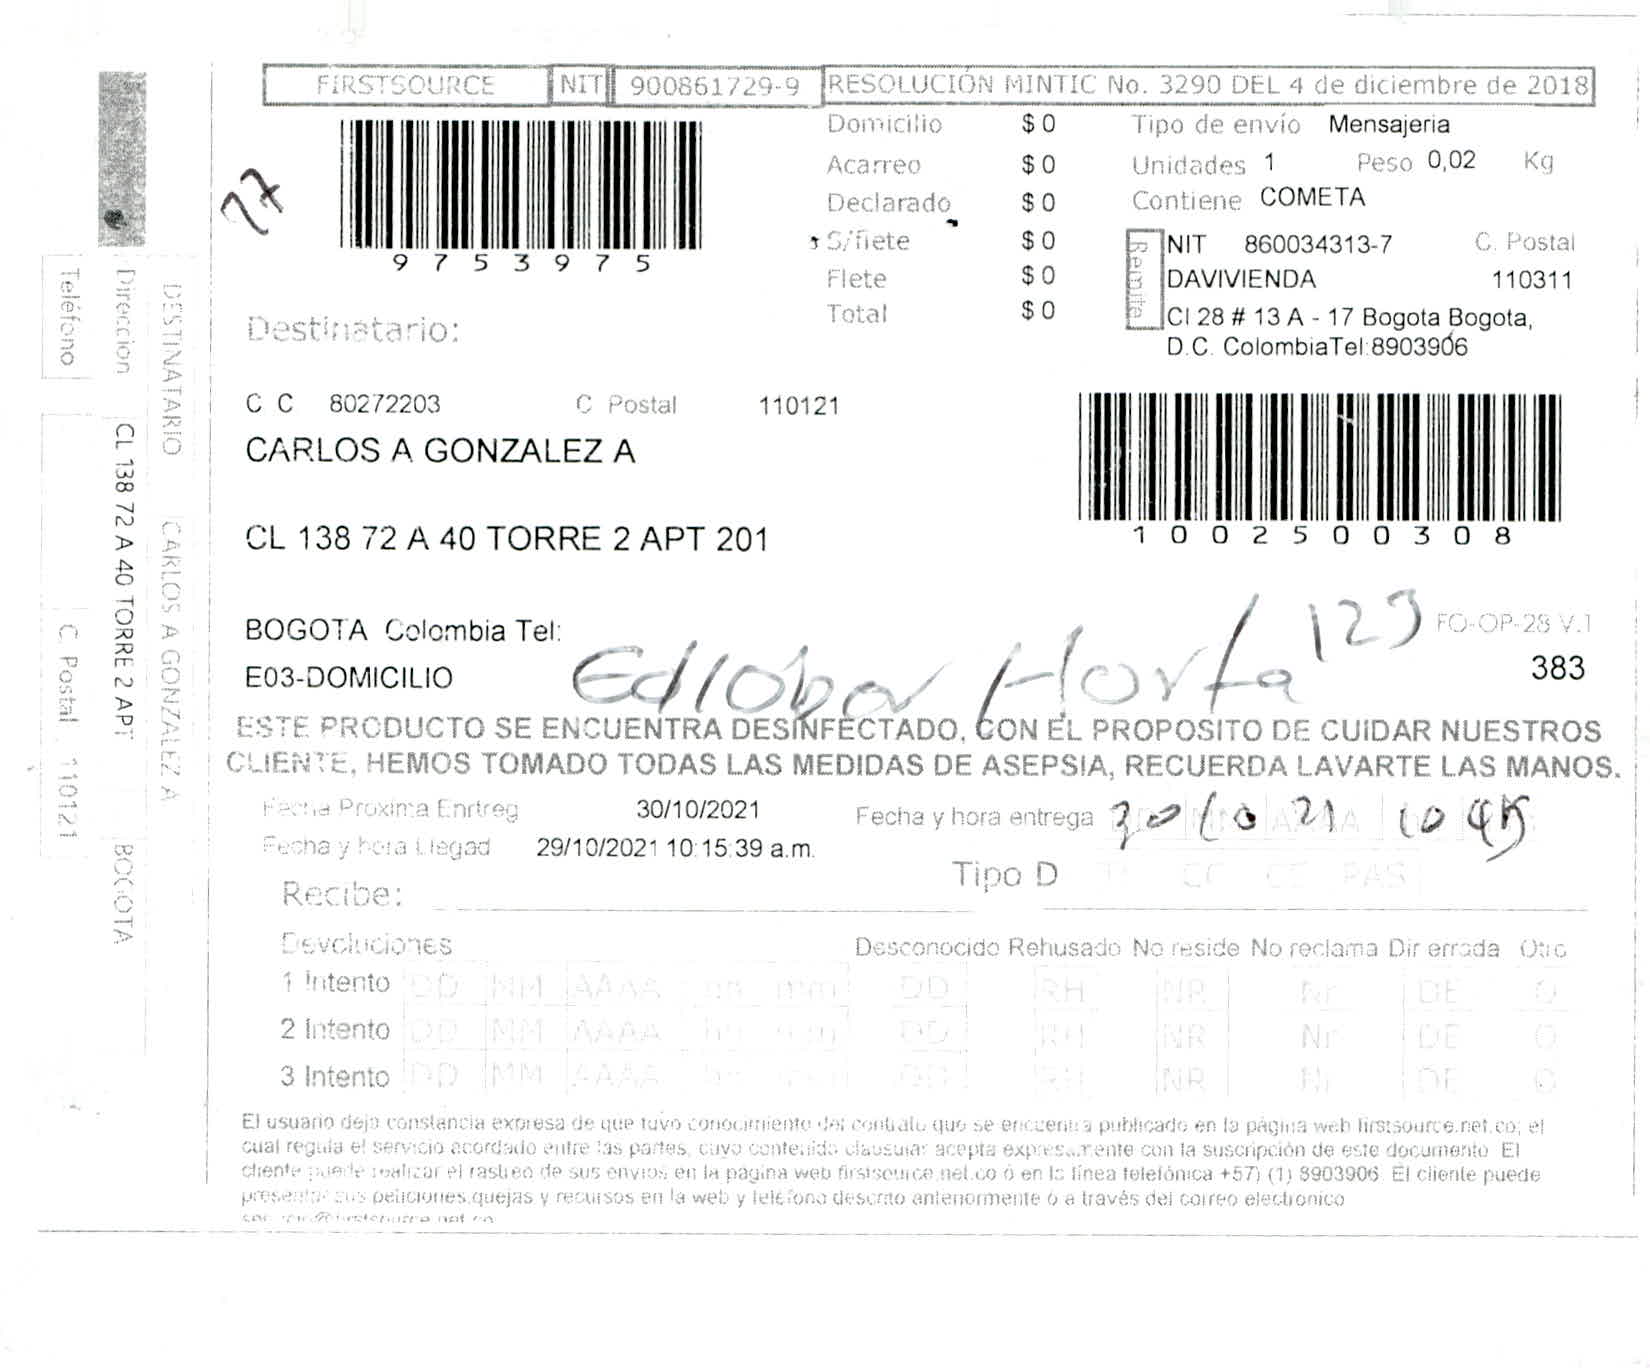 FIRSTSOURCE NIT 900861729-9 RESOLUCIÓN MINTIC No. 3290 DEL 4 de diciembre de 2018
77
9753975
Domicilio $ 0
Acarreo $ 0
Declarado $ 0
S/flete $ 0
Flete $ 0
Total $ 0
Tipo de envío Mensajeria
Unidades 1 Peso 0,02 Kg
Contiene COMETA
Remite
NIT 860034313-7 C. Postal
DAVIVIENDA 110311
Cl 28 # 13 A - 17 Bogota Bogota,
D.C. ColombiaTel:8903906
Destinatario:
C C 80272203 C Postal 110121
CARLOS A GONZALEZ A
CL 138 72 A 40 TORRE 2 APT 201
1002500308
BOGOTA Colombia Tel:
E03-DOMICILIO
Horta 129
FO-OP-28 V.1
383
ESTE PRODUCTO SE ENCUENTRA DESINFECTADO, CON EL PROPOSITO DE CUIDAR NUESTROS
CLIENTE, HEMOS TOMADO TODAS LAS MEDIDAS DE ASEPSIA, RECUERDA LAVARTE LAS MANOS.
Fecha Proxima Entreg 30/10/2021 Fecha y hora entrega 30 10 21 10 45
Fecha y hora Llegad 29/10/2021 10:15:39 a.m.
Tipo D TI CC CE PAS
Recibe:
Devoluciones Desconocido Rehusado No reside No reclama Dir errada Otro
1 Intento DD MM AAAA hh mm DD RH NR Nr DE O
2 Intento DD MM AAAA hh mm DD RH NR Nr DE O
3 Intento DD MM AAAA hh mm DD RH NR Nr DE O
El usuario deja constancia expresa de que tuvo conocimiento del contrato que se encuentra publicado en la página web firstsource.net.co; el
cual regula el servicio acordado entre las partes, cuyo contenido clausular acepta expresamente con la suscripción de este documento El
cliente puede realizar el rastreo de sus envios en la página web firstsource.net.co ó en la línea telefónica +57) (1) 8903906 El cliente puede
presentar sus peticiones,quejas y recursos en la web y teléfono descrito anteriormente ó a través del correo electronico
DESTINATARIO CARLOS A GONZALEZ A
Direccion CL 138 72 A 40 TORRE 2 APT BOGOTA
Teléfono C Postal 110121